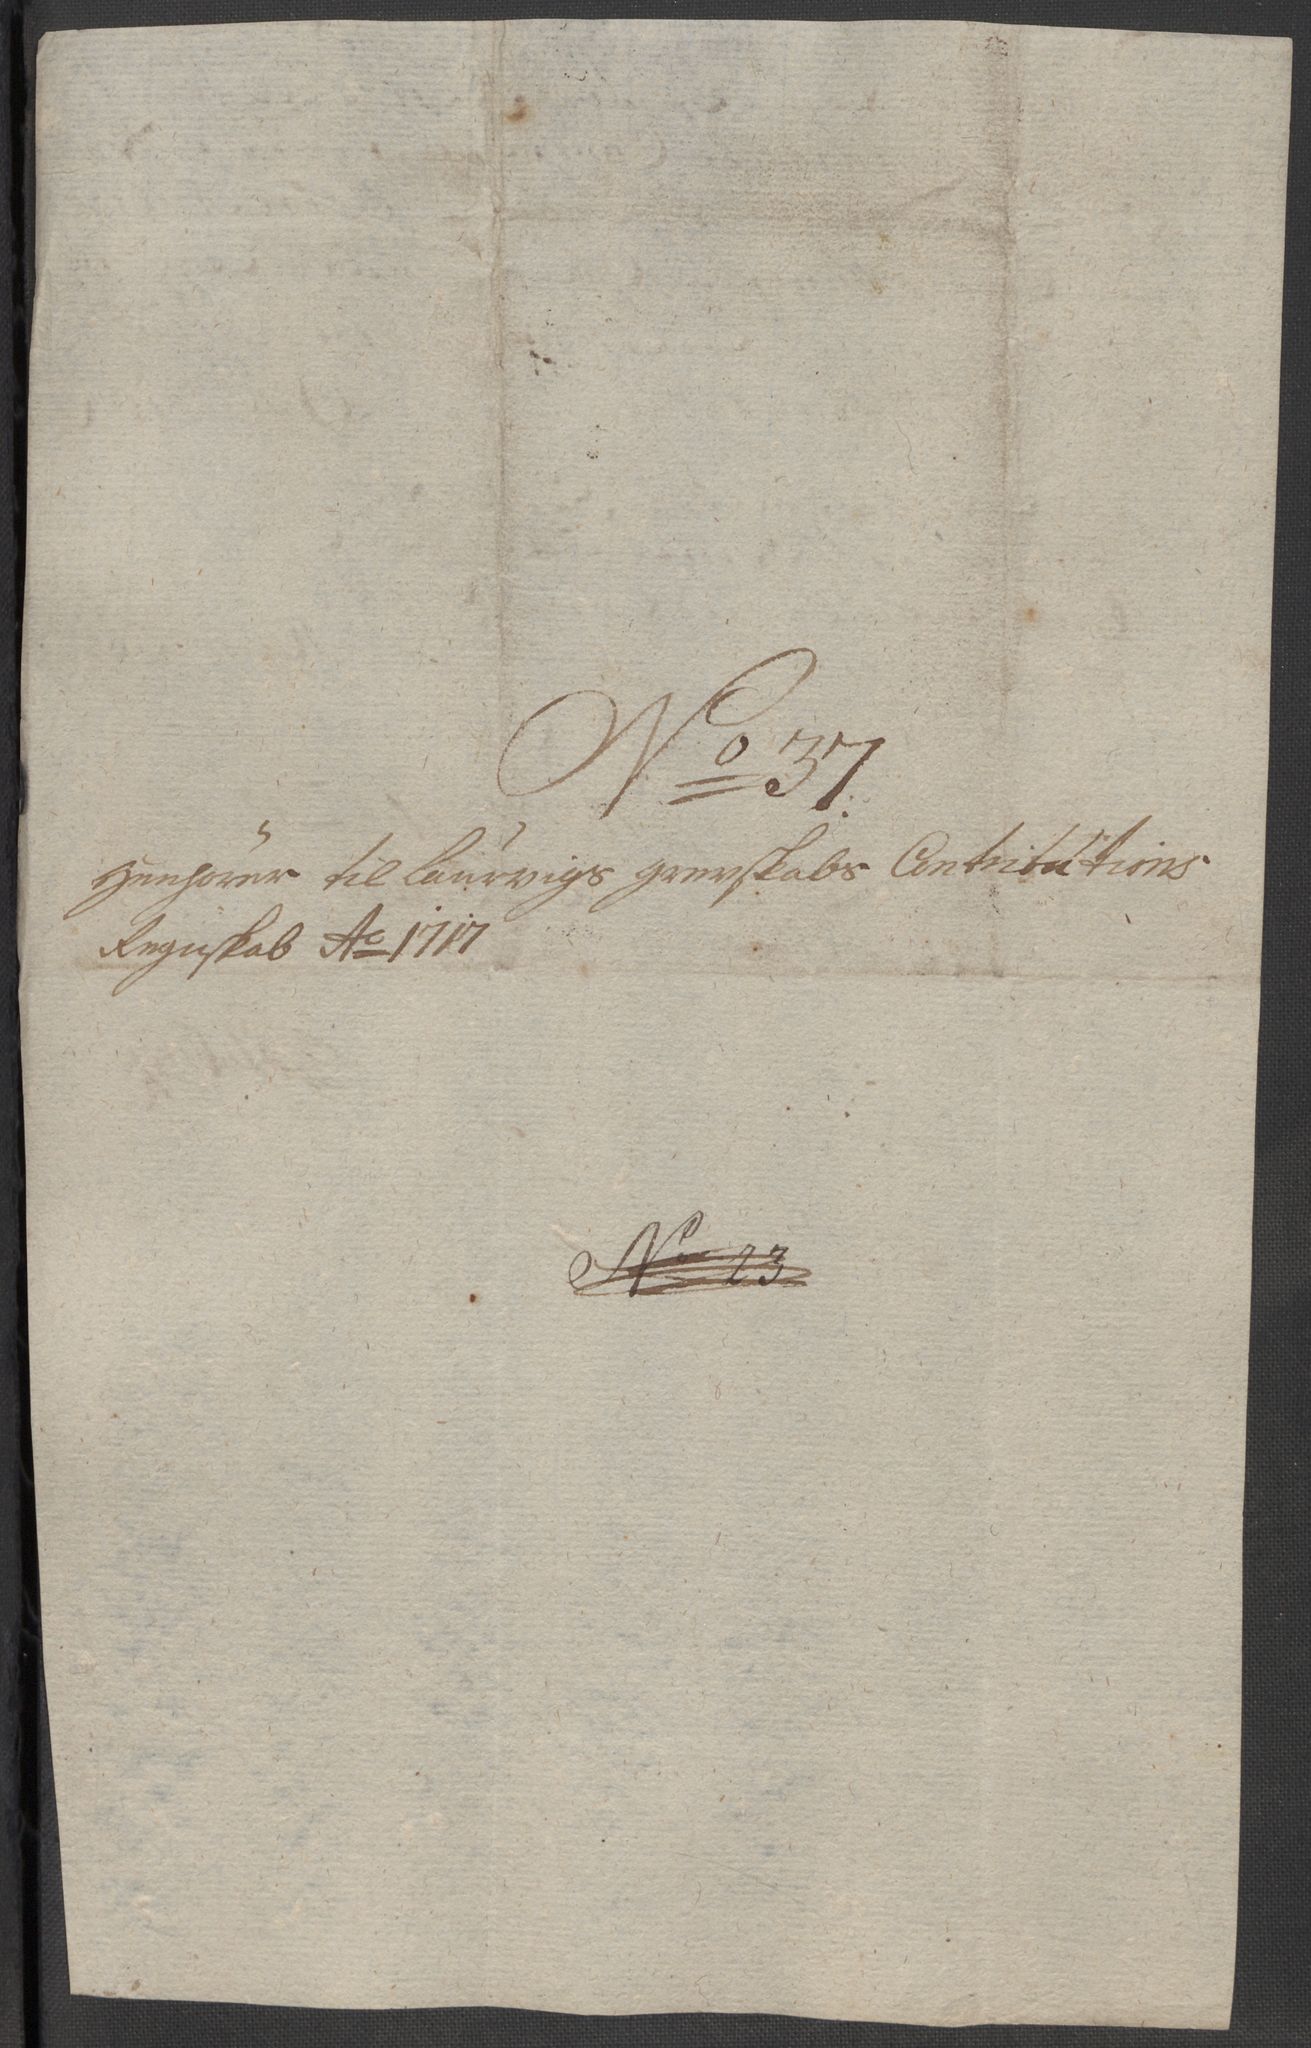 No 37.
Henhörer til Laurvigs grevskabs Contributions
Regnskab Ao 1717
No 23